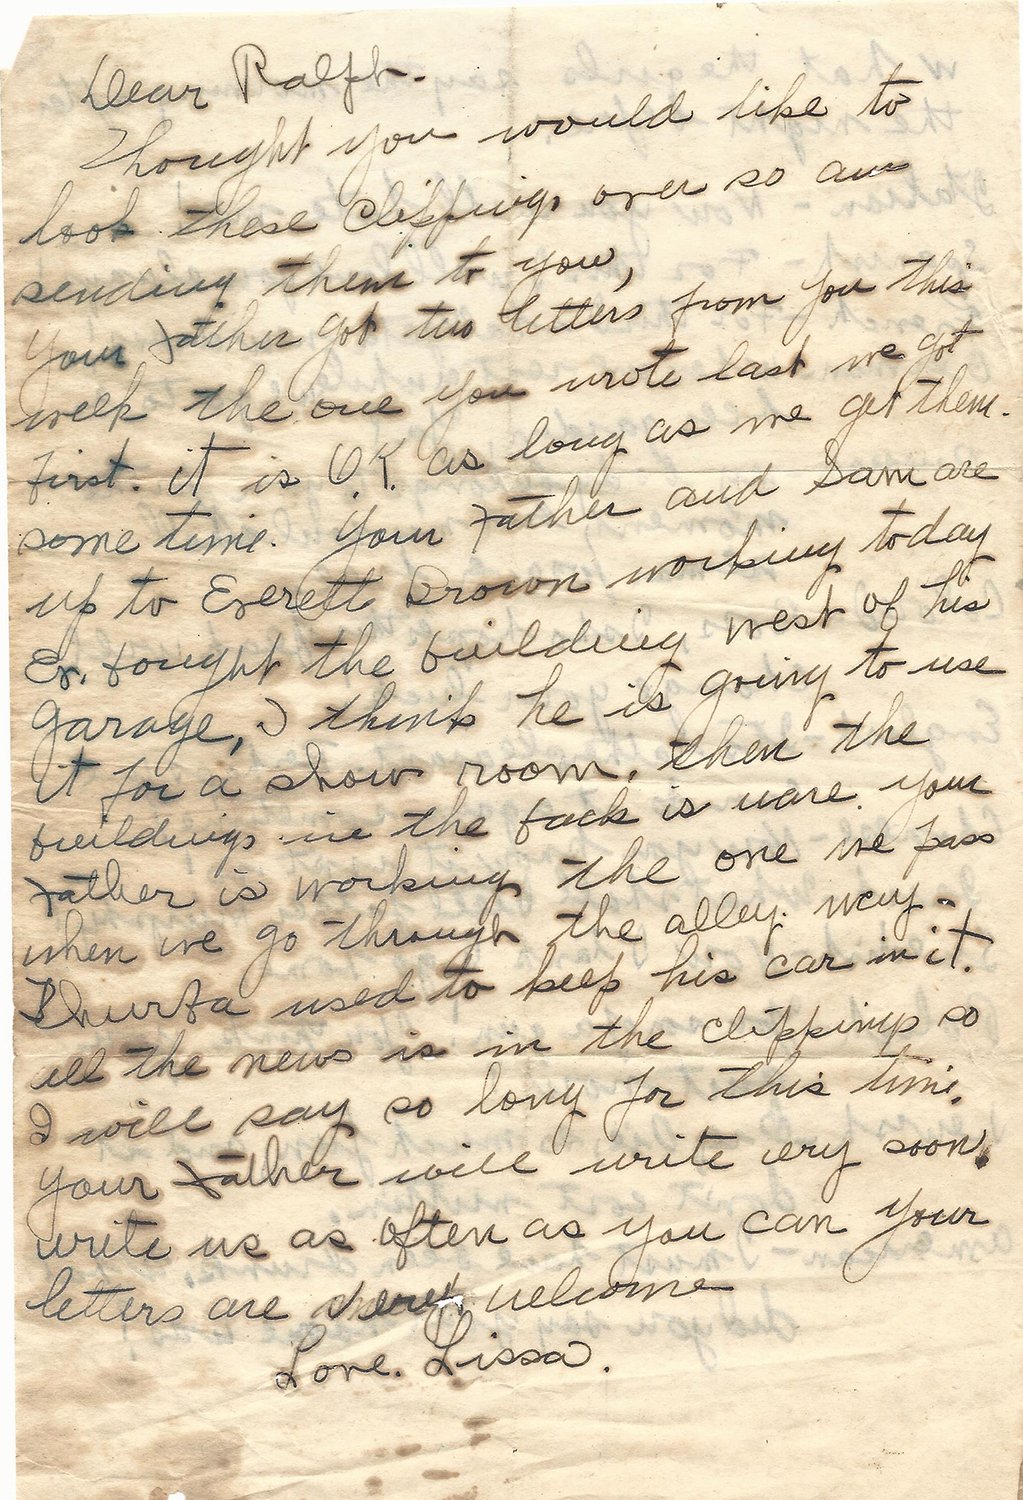 Dear Ralph.
Thought you would like to
look these clippings over so am
sending them to you,
your Father got two letters from you this
week the one you wrote last we got
first. it is O.K. as long as we get them.
some time. your Father and Sam are
up to Everett Brown working today
Ev. bought the building west of his
garage, I think he is going to use
it for a show room. then the
buildings in the back is
your
Father is working the one we pass
when we go through the alley. way.
used to keep his car in it.
all the news is in the clippings so
I will say so long for this time.
your Father will write very soon.
write us as often as you can your
letters are very welcome
Love. Lissa.